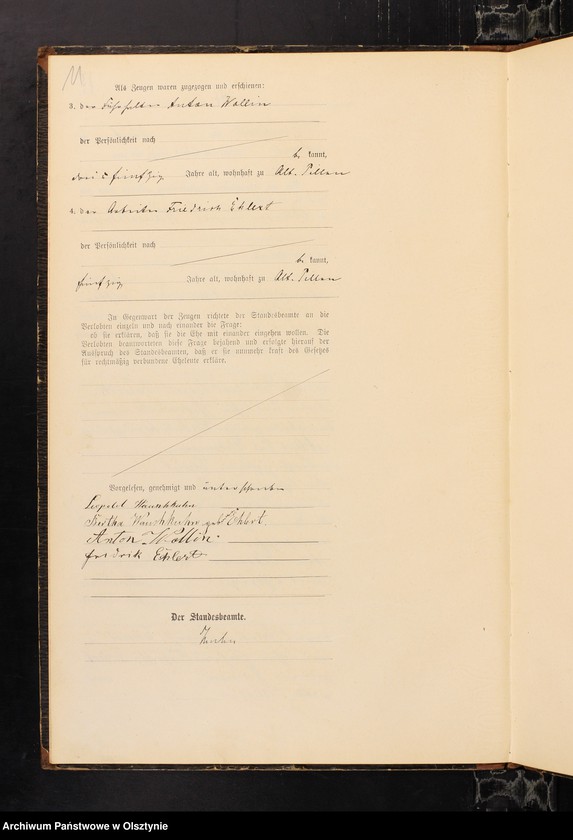 11
Als Zeugen waren zugezogen und erschienen:
3. der Anton Wollin
der Persönlichkeit nach
be kannt,
drei u. fünfzig Jahre alt, wohnhaft zu Alt-Pillau
4. der Arbeiter Friedrich Ehlert
der Persönlichkeit nach
be kannt,
fünfzig Jahre alt, wohnhaft zu Alt-Pillau
In Gegenwart der Zeugen richtete der Standesbeamte an die
Verlobten einzeln und nach einander die Frage:
ob sie erklären, daß sie die Ehe mit einander eingehen wollen. Die
Verlobten beantworteten diese Frage bejahend und erfolgte hierauf der
Ausspruch des Standesbeamten, daß er sie nunmehr kraft des Gesetzes
für rechtmäßig verbundene Eheleute erkläre.
Vorgelesen, genehmigt und unterschrieben
Leopold
geb Ehlert.
Anton Wollin.
fredrik Ehlert
Der Standesbeamte.
Archiwum Państwowe w Olsztynie